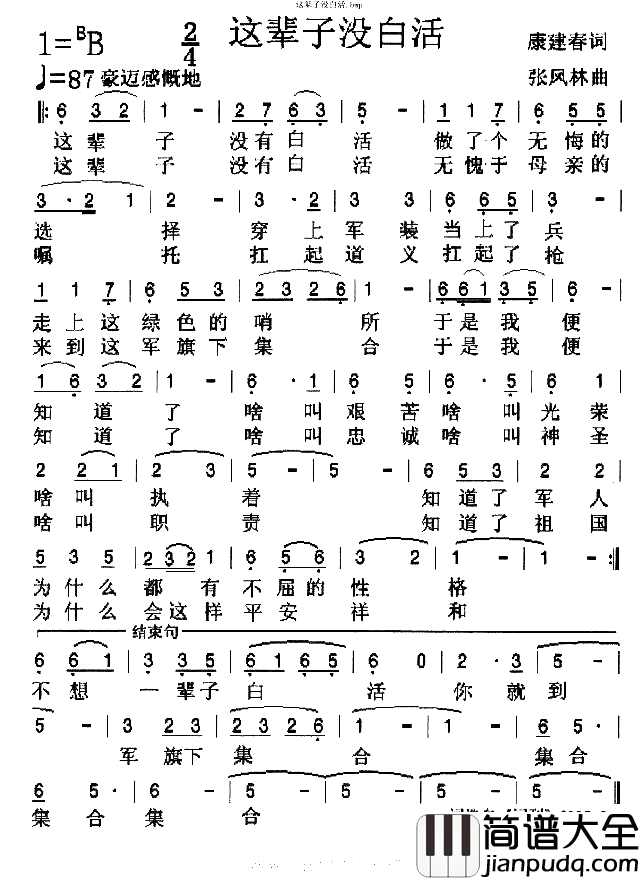 这辈子没白活.bmp
1=ᵇB 2/4 这辈子没白活 康建春词
♩=87 豪迈感慨地 张风林曲
‖: 6 3 2 | 1 - | 2 7 6 3 | 5 - | 1 1 7 6 5 |
这辈子没有白活做了个无悔的
这辈子没有白活无愧于母亲的
3 · 2 1 | 2 - | 3 2 3 | 6 6 5 5 | 3 - |
选择穿上军装当上了兵
嘱托扛起道义扛起了枪
1 1 7 | 6 5 3 | 2 3 2 6 | 1 - | 6 6 1 3 5 | 5 - |
走上这绿色的哨所于是我便
来到这军旗下集合于是我便
1 6 3 2 | 1 - | 6 · 1 | 2 3 | 6 · 5 | 6 1 |
知道了啥叫艰苦啥叫光荣
知道了啥叫忠诚啥叫神圣
2 2 1 | 2 3 | 5 - | 5 - | 6 5 3 | 2 5 |
啥叫执着知道了军人
啥叫职责知道了祖国
5 3 5 | 2 3 2 1 | 6 5 6 | 3 2 | 1 - | 1 - :‖
为什么都有不屈的性格
为什么会这样平安祥和
结束句
6 6 1 | 3 3 5 | 6 1 6 5 | 6 0 | 2 · 3 | 5 - |
不想一辈子白活你就到
5 - | 3 2 3 | 2 3 2 6 | 1 - | 1 - | 2 2 3 | 5 - |
军旗下集合集合
6 5 | 2 2 3 | 6 - | 5 - | 5 - | 5 - | 5
集合集合
简谱大全
jianpudq.com